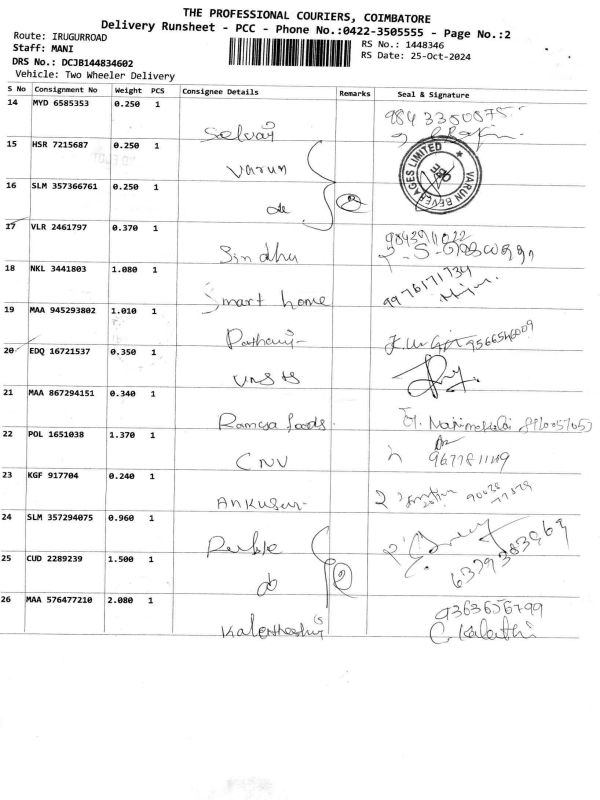 THE PROFESSIONAL COURIERS, COIMBATORE
Delivery Runsheet - PCC - Phone No.:0422-3505555 - Page No.:2
Route: IRUGURROAD
Staff: MANI
RS No.: 1448346
DRS No.: DCJB144834602
RS Date: 25-Oct-2024
Vehicle: Two Wheeler Delivery
S No Consignment No Weight PCS Consignee Details Remarks Seal & Signature
14 MYD 6585353 0.250 1 Selvaj
15 HSR 7215687 0.250 1 Varun
VARUN BEVERAGES LIMITED
16 SLM 357366761 0.250 1 do 2
17 VLR 2461797 0.370 1 Sindhu
18 NKL 3441803 1.080 1 Smart home 9976171734
19 MAA 945293802 1.010 1
20 EDQ 16721537 0.350 1
21 MAA 867294151 0.340 1 foods
22 POL 1651038 1.370 1 CNV 9677811149
23 KGF 917704 0.240 1 Ankusur
24 SLM 357294075 0.960 1
25 CUD 2289239 1.500 1 do 2 6379383969
26 MAA 576477210 2.080 1 9363656799